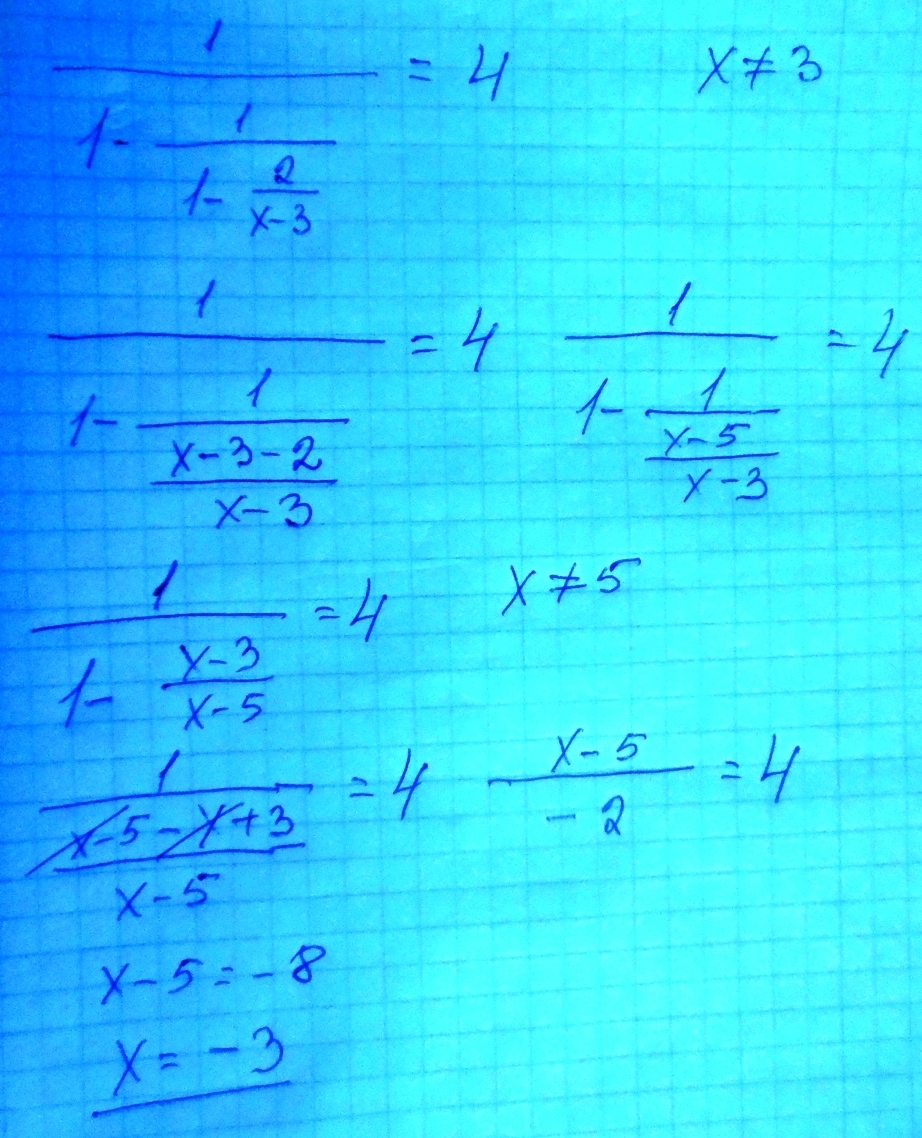 1/(1 - 1/(1 - 2/(x-3))) = 4    x ≠ 3
1/(1 - 1/((x-3-2)/(x-3))) = 4    1/(1 - 1/((x-5)/(x-3))) = 4
1/(1 - (x-3)/(x-5)) = 4    x ≠ 5
1/((x-5-x+3)/(x-5)) = 4    (x-5)/(-2) = 4
x-5 = -8
x = -3